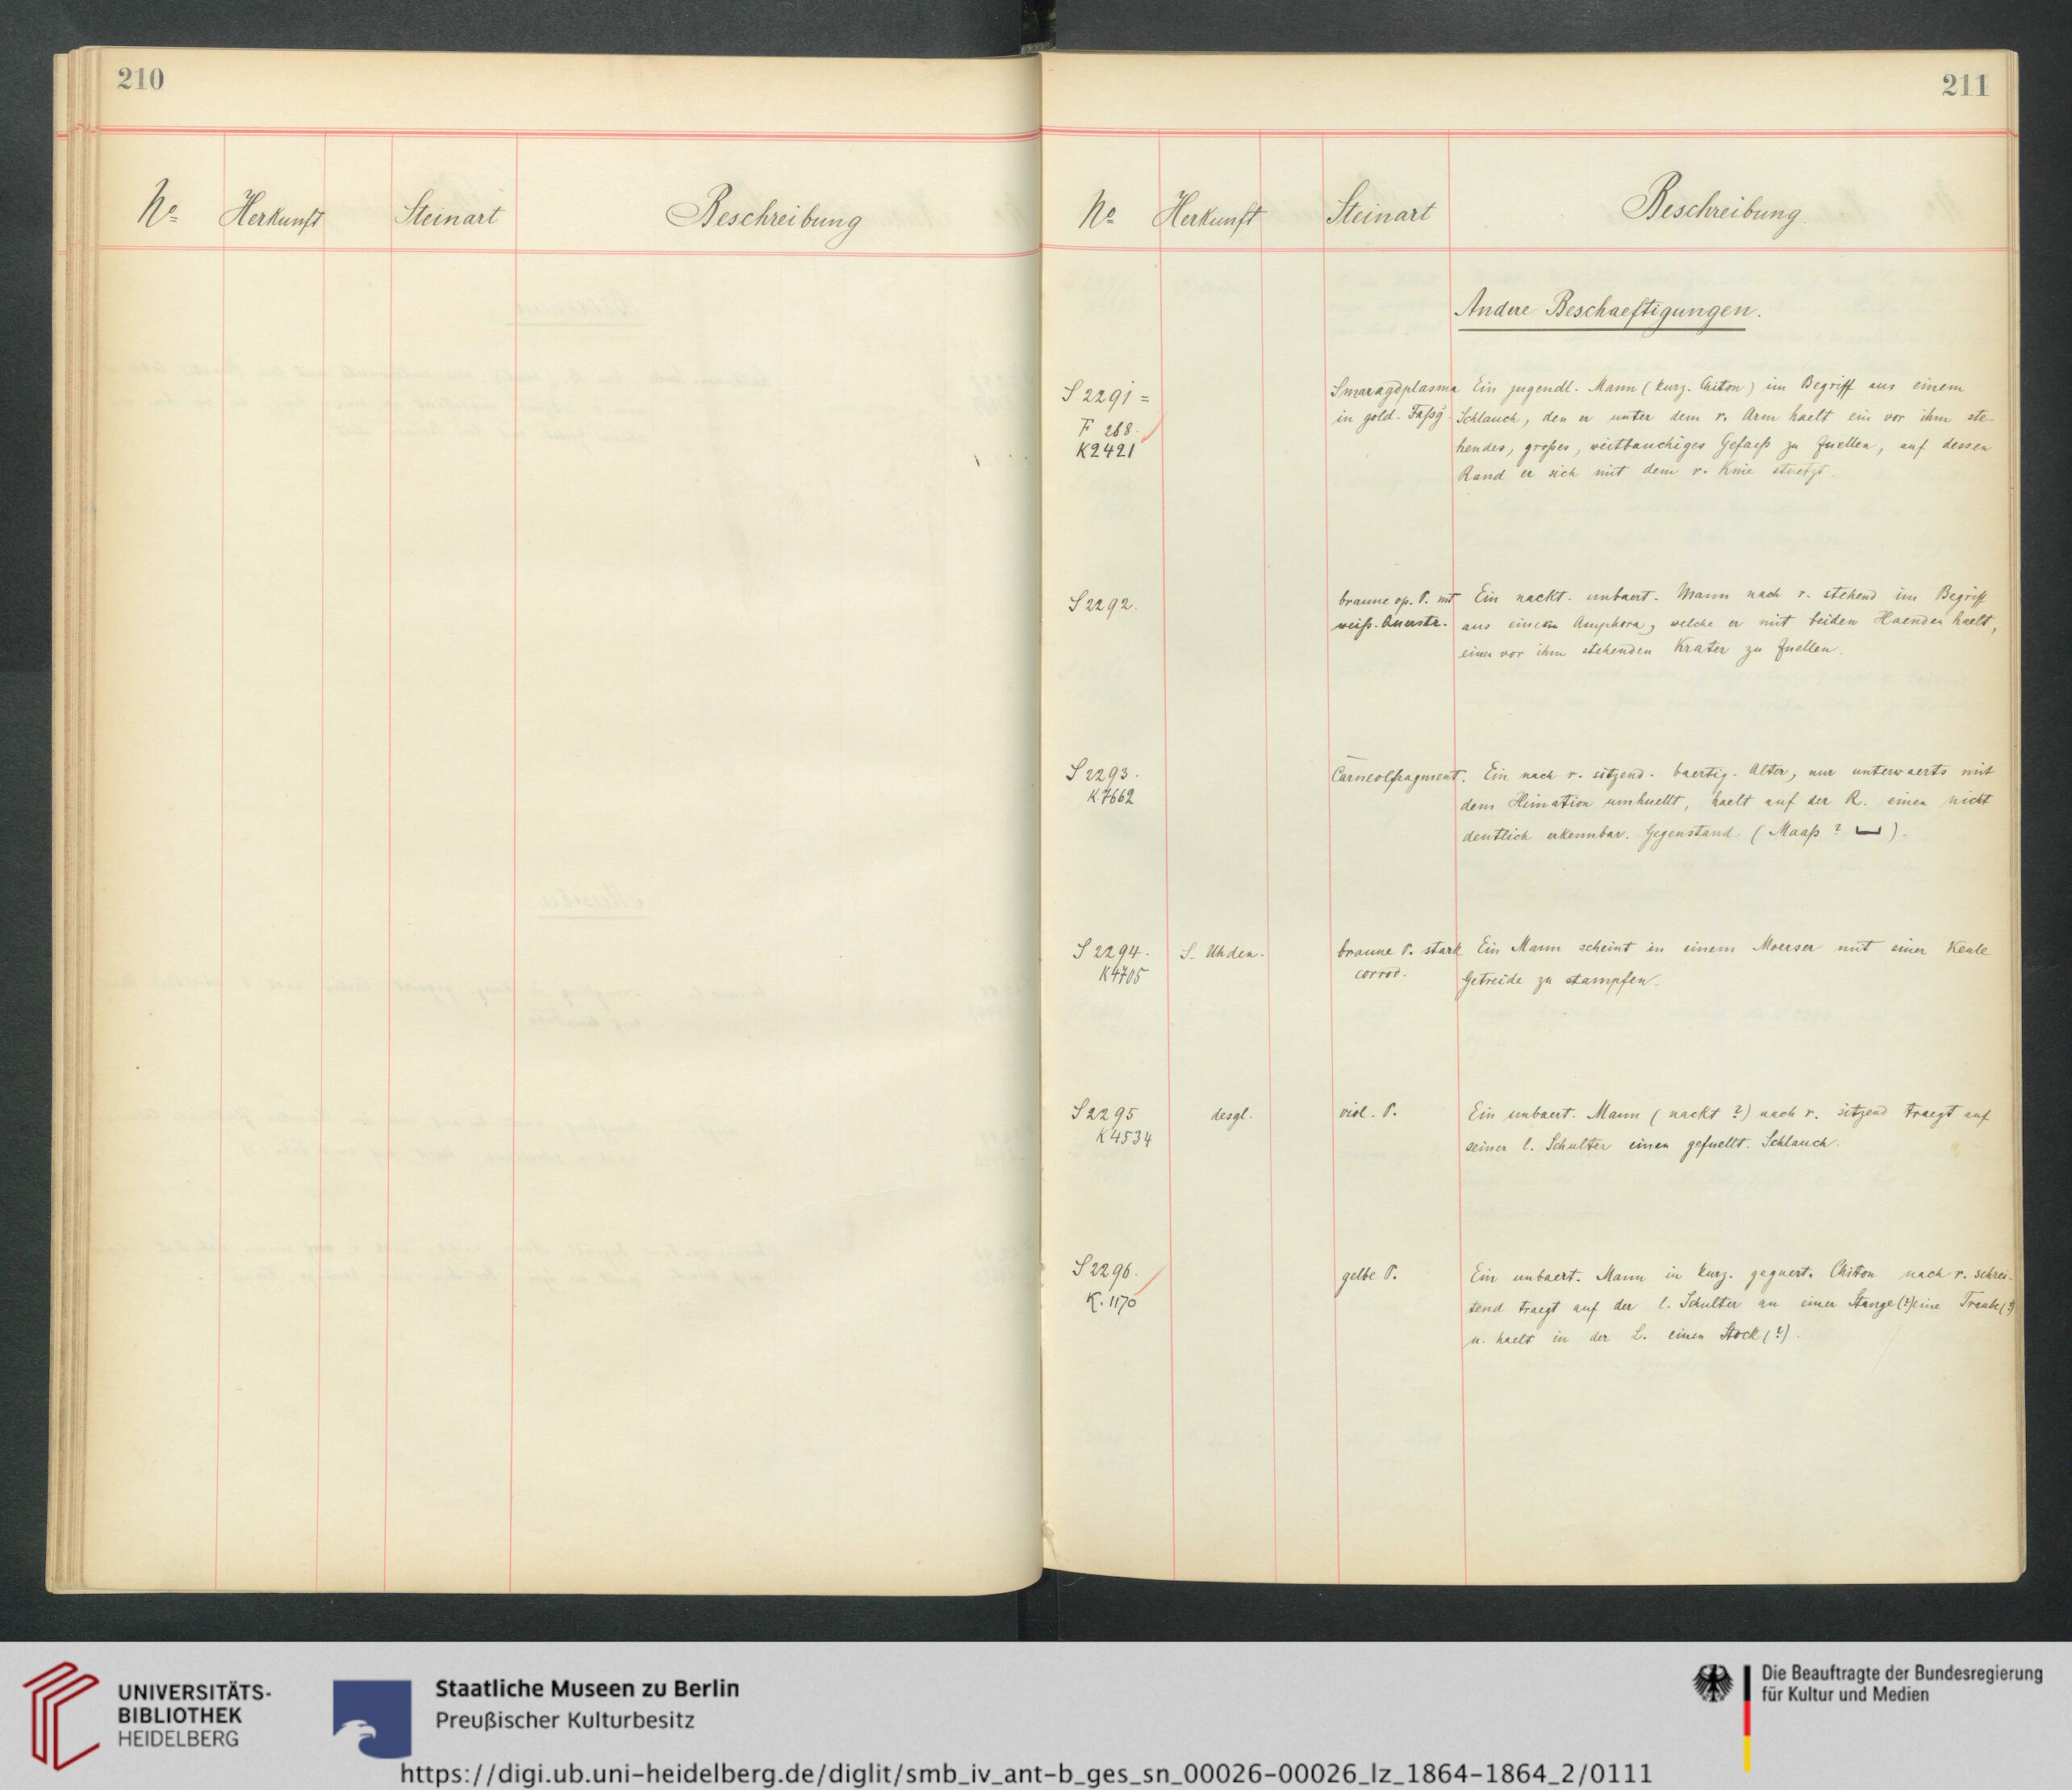 210
No Herkunft Steinart Beschreibung
211
No Herkunft Steinart Beschreibung
Andere Beschaeftigungen.
S 2291 =
F 268.
K2421
Smaragdplasma
in gold. Faßg.
Ein jugendl. Mann (kurz. Chiton) im Begriff aus einem
Schlauch, den er unter dem r. Arm haelt ein vor ihm ste-
hendes, großes, weitbauchiges Gefaeß zu fuellen, auf dessen
Rand er sich mit dem r. Knie stuetzt.
S 2292.
braune op. P. mit
weiß. Querstr.
Ein nackt. unbaert. Mann nach r. stehend im Begriff
aus einer Amphora, welche er mit beiden Haenden haelt,
einen vor ihm stehenden Krater zu fuellen.
S 2293.
K7662
Carneolfragment.
Ein nach r. sitzend. baertig. Alter, nur unterwaerts mit
dem Himation umhuellt, haelt auf der R. einen nicht
deutlich erkennbar. Gegenstand. (Maaß? ).
S 2294.
K4705
S. Uhden.
braune P. stark
corrod.
Ein Mann scheint in einem Moerser mit einer Keule
Getreide zu stampfen.
S 2295
K4534
desgl.
viol. P.
Ein unbaert. Mann (nackt?) nach r. sitzend traegt auf
seiner l. Schulter einen gefuellt. Schlauch.
S 2296.
K. 1170
gelbe P.
Ein unbaert. Mann in kurz. geguert. Chiton nach r. schrei-
tend traegt auf der l. Schulter an einer Stange (?) eine Traube (?)
u. haelt in der L. einen Stock (?).
UNIVERSITÄTS-
BIBLIOTHEK
HEIDELBERG
Staatliche Museen zu Berlin
Preußischer Kulturbesitz
Die Beauftragte der Bundesregierung
für Kultur und Medien
https://digi.ub.uni-heidelberg.de/diglit/smb_iv_ant-b_ges_sn_00026-00026_lz_1864-1864_2/0111